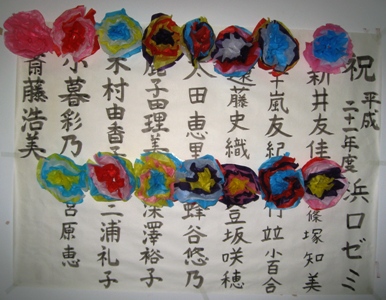 祝 平成二十一年度 浜口ゼミ
新井友佳 篠塚知美
十嵐友紀 竹並小百合
遠藤史織 登坂咲穂
太田恵里 蜂谷悠乃
鹿子田理美 深澤裕子
木村由香 三浦礼子
小暮彩乃 宮原恵
齋藤浩美